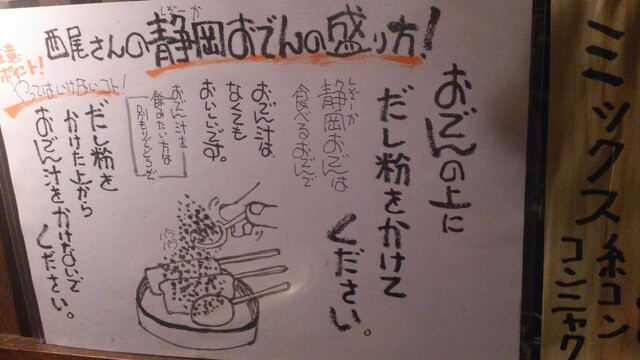 西尾さんの静岡おでんの盛り方!
しぞーか
おでんの上に
だし粉をかけて
ください。
しぞーか
静岡おでんは
食べるおでんで
おでん汁は
なくても
おいしいです。
おでん汁を
飲みたい方は
別もりでどうぞ
注意
ポイント!
やってはいけないコト!
だし粉を
かけた上から
おでん汁をかけないで
ください。
パラパラ
ミックス糸コン
コンニャク